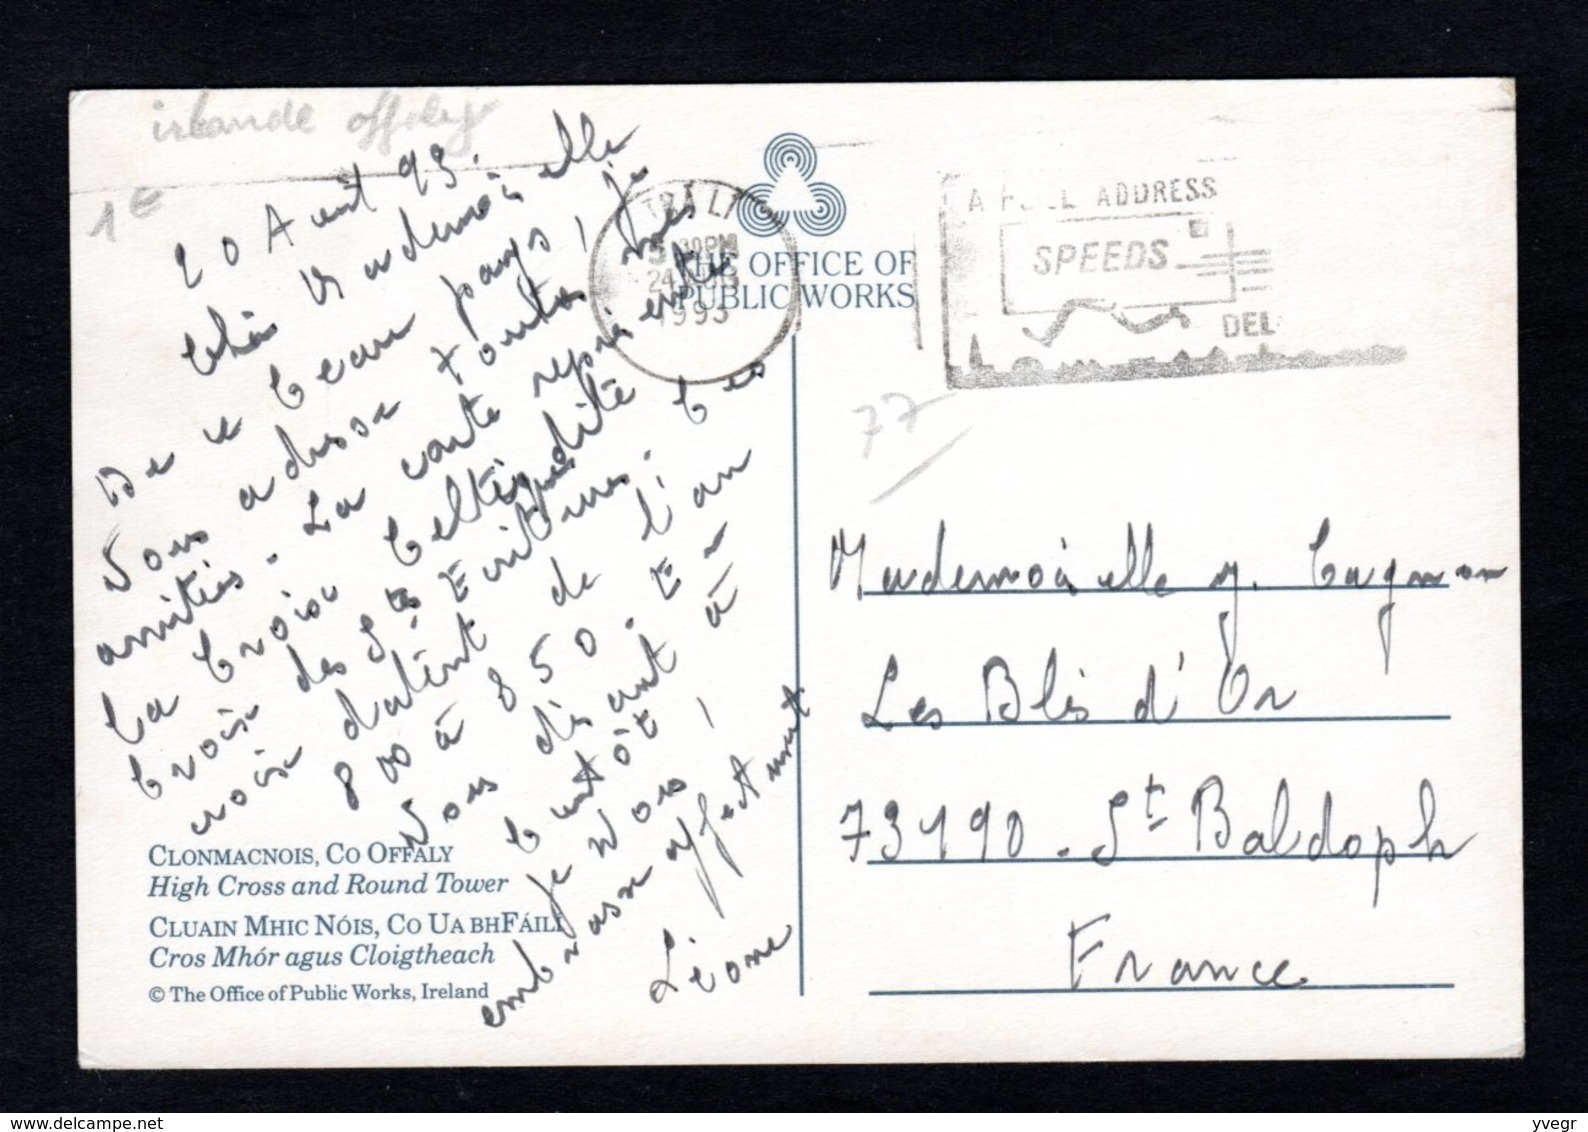 irlande offaly
1€
20 Août 93.
Chère Mademoiselle
De ce beau pays, je
vous adresse toutes mes
amitiés. La carte représente
la Croix Celtique dite
Croix des Stes Ecritures. Ces
croix datent de l'an
800 à 850. En
vous disant à
bientôt,
je vous
embrasse affectueusement
Léone
TRÁ LÍ
5.30PM
24
1993
THE OFFICE OF
PUBLIC WORKS
A FULL ADDRESS
SPEEDS
DEL
77
Mademoiselle Y. Cagnon
Les Blés d'Or
73190 - St Baldoph
France
CLONMACNOIS, CO OFFALY
High Cross and Round Tower
CLUAIN MHIC NÓIS, CO UA BHFÁILÍ
Cros Mhór agus Cloigtheach
© The Office of Public Works, Ireland
www.delcampe.net
yvegr